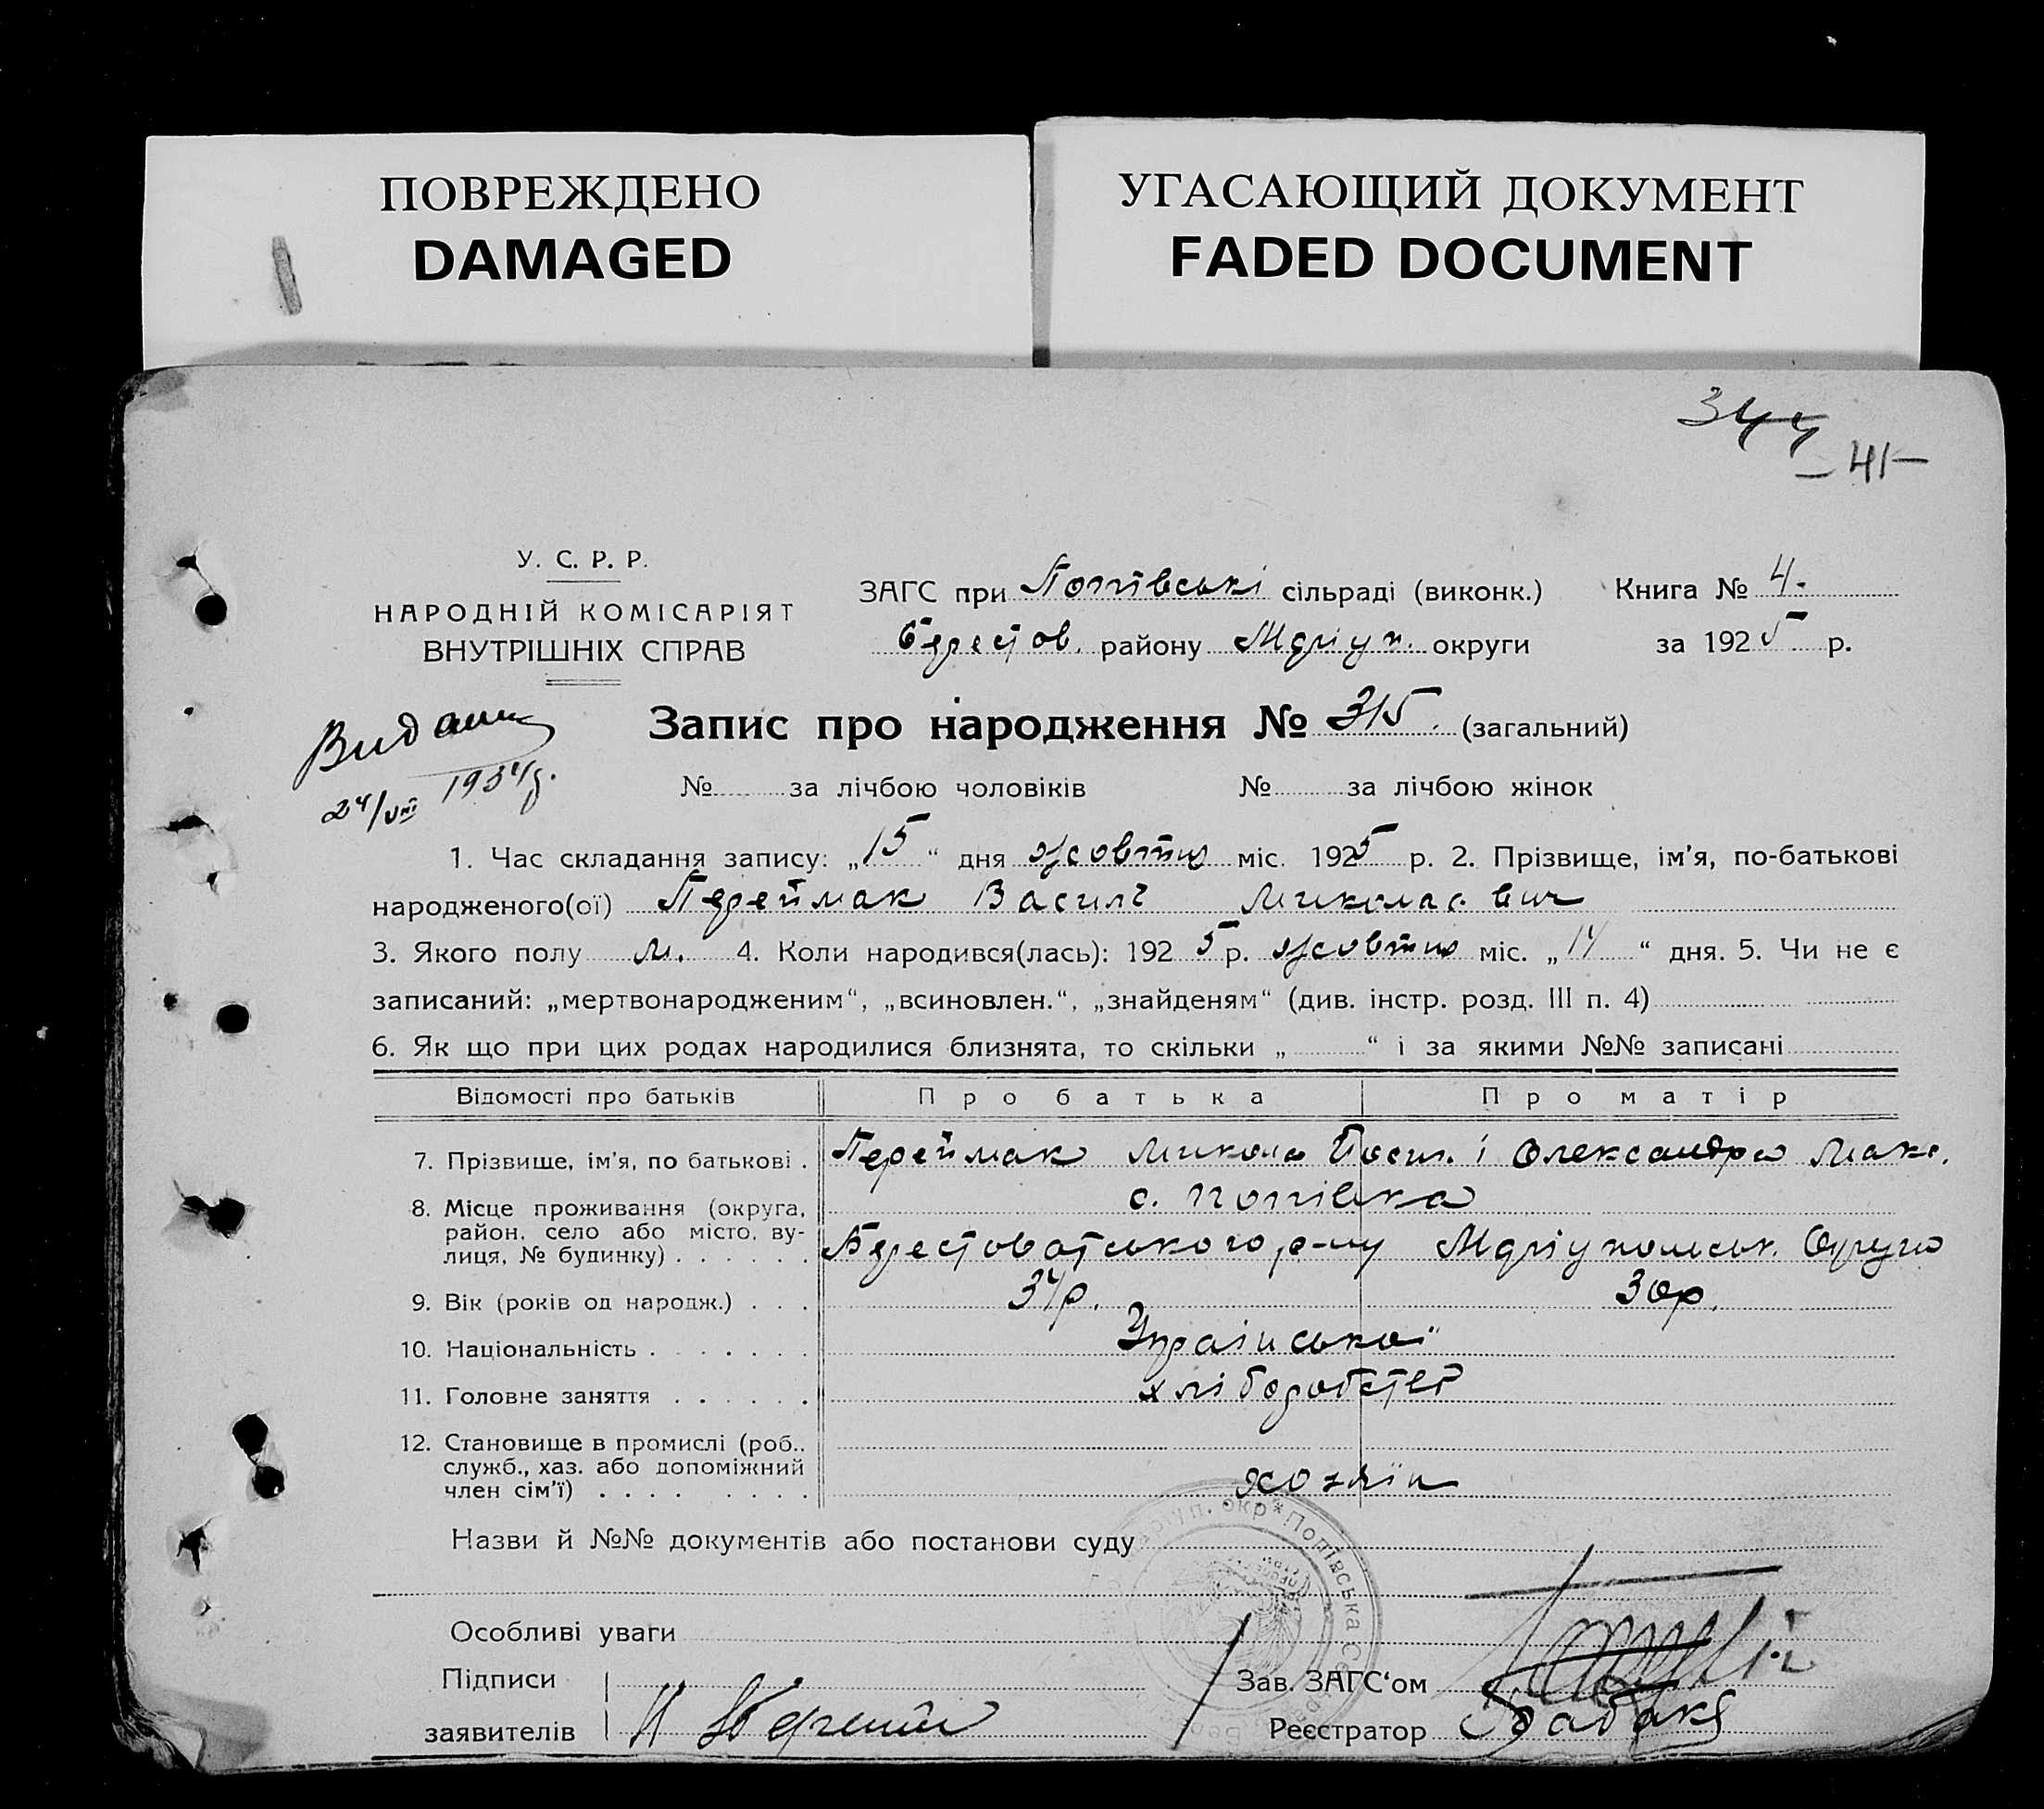 ПОВРЕЖДЕНО
DAMAGED
УГАСАЮЩИЙ ДОКУМЕНТ
FADED DOCUMENT
344
41
У. С. Р. Р.
НАРОДНІЙ КОМІСАРІЯТ
ВНУТРІШНІХ СПРАВ
ЗАГС при Попівські сільраді (виконк.) Книга № 4.
Берестов. району Маріуп. округи за 1925 р.
Видани
24/VIII 1934р.
Запис про народження № 315. (загальний)
№ за лічбою чоловіків № за лічбою жінок
1. Час складання запису: „15“ дня жовтня міс. 1925 р. 2. Прізвище, ім'я, по-батькові
народженого(ої) Переймак Василь Миколаєвич
3. Якого полу м. 4. Коли народився(лась): 1925 р. жовтня міс. „14“ дня. 5. Чи не є
записаний: „мертвонародженим“, „всиновлен.“, „знайденям“ (див. інстр. розд. III п. 4)
6. Як що при цих родах народилися близнята, то скільки „ “ і за якими №№ записані
Відомості про батьків Про батька Про матір
7. Прізвище, ім'я, по батькові . Переймак Микола і Олександра Мак.
8. Місце проживання (округа, с. Попівка
район, село або місто, ву-
лиця, № будинку) . . . . . . Берестоватського р-ну Маріупольськ. Округи
9. Вік (років од народж.) . . . 34р. 30р.
10. Національність . . . . . . . Української
11. Головне заняття . . . . . . хліборобство
12. Становище в промислі (роб.,
служб., хаз. або допоміжний
член сім'ї) . . . . . . . . хозяїн
Назви й №№ документів або постанови суду
Маріуп. окр * Попівська
Особливі уваги
Підписи Зав. ЗАГС‘ом
заявителів Реєстратор Бабак